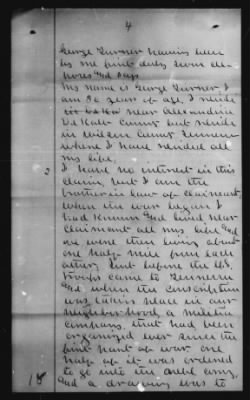 4
George Turner having been
by me first duly sworn de-
poses and says
My name is George Turner, I
am 50 years of age, I reside
near Alexandria
De Kalb County but reside
in Wilson County Tennessee
where I have resided all
my life.
2 I have no interest in this
claim, but I am the
brother in law of claimant.
When the war began I
had known and lived near
claimant all my life and
we were then living about
one half mile from each
other, just before the U.S.
troops came to Tennessee
and when the conscription
was taking place in our
neighborhood, a militia
company, that had been
organized ever since the
first part of war one
half of it was ordered
to go into the rebel army,
and a drawing was to